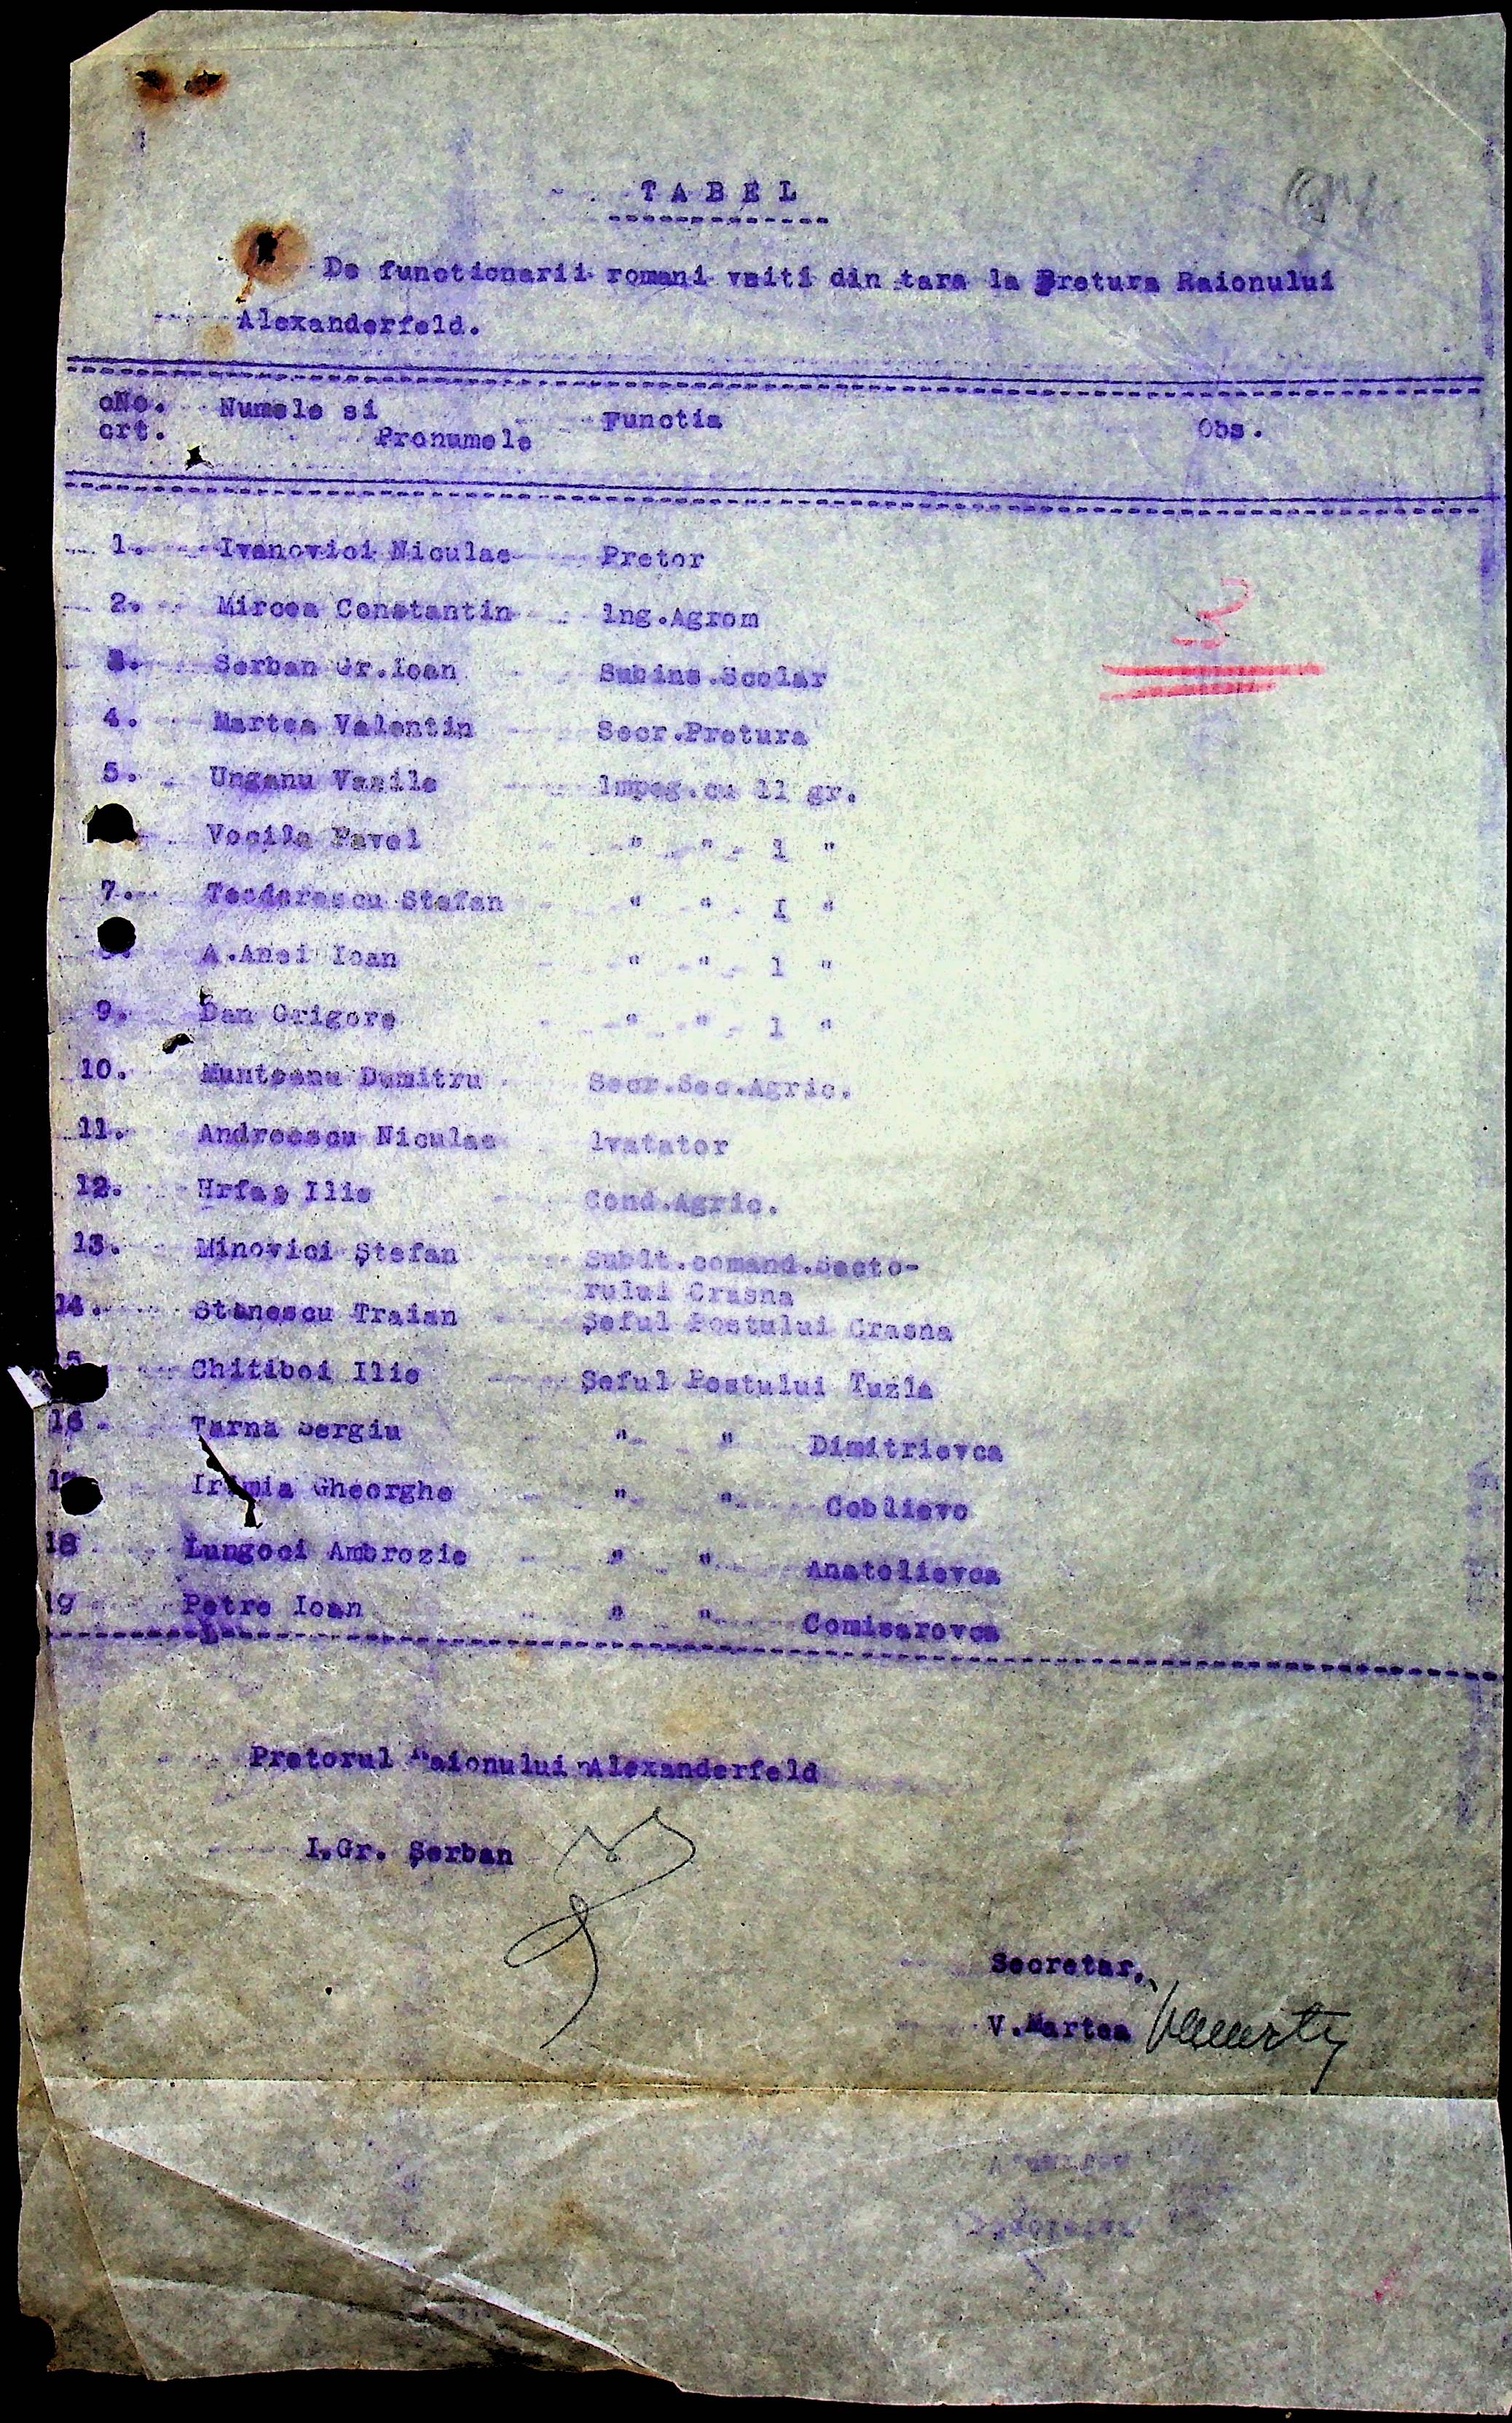 TABEL
De functionarii romani vniti din tara la Pretura Raionului
Alexanderfeld.
No. Numele si Functia Obs.
crt. Pronumele
1. Ivanovici Niculae Pretor
2. Mircea Constantin lng.Agrom
3. Serban Gr.Ioan Subins.Scolar
4. Martea Valentin Secr.Pretura
5. Unganu Vasile lmpeg.cu ll gr.
Vocila Pavel " " l "
7. Teodorescu Stefan " " I "
A.Anei Ioan " " l "
9. Dan Grigore " " l "
10. Munteanu Dumitru Secr.Sec.Agric.
11. Andreescu Niculae lvatator
12. Ilie Cond.Agric.
13. Minovici Ştefan Sublt.comand.Secto-
rului Crasna
14. Stanescu Traian Şeful Postului Crasna
15 Chitiboi Ilie Şeful Postului Tuzla
16 Tarna Sergiu " " Dimitrievca
17 Irimia Gheorghe " " Coblievo
18 Lungoci Ambrozie " " Anatolievca
19 Petre Ioan " " Comisarovca
Pretorul Raionului Alexanderfeld
I.Gr. Şerban
Secretar,
V.Martea